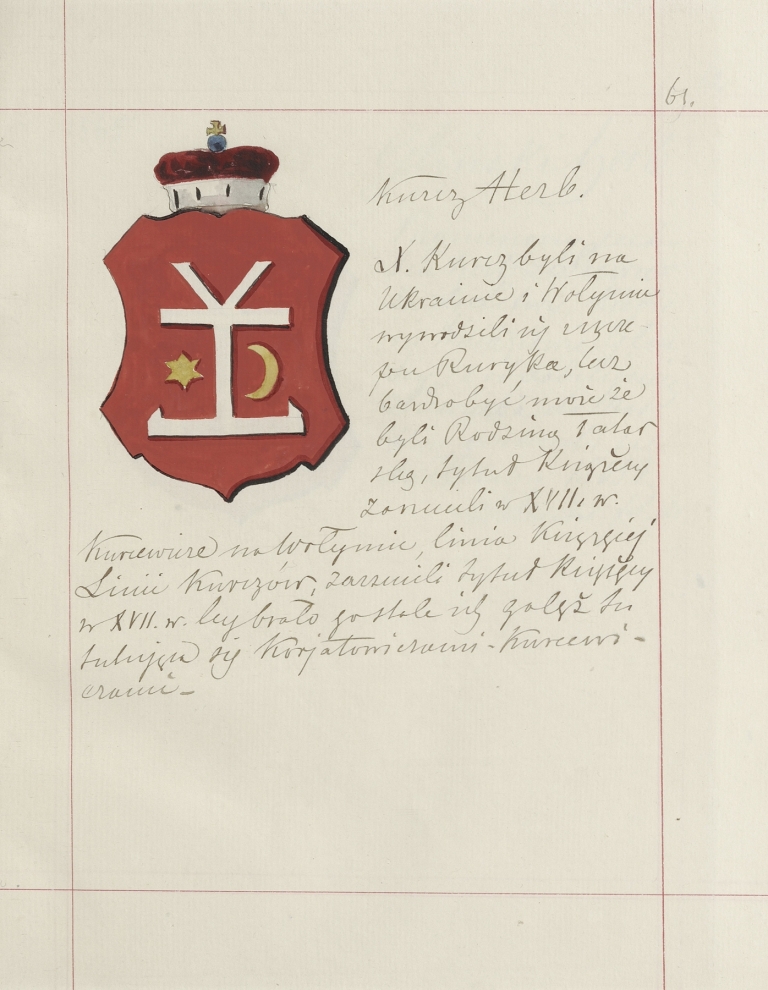 61.
Kurcz Herb.
X. Kurcz byli na
Ukrainie i Wołyniu
wywodzili się ze szcze-
pu Ruryka, lecz
bardzo być może że
byli Rodziną Tatar
ską, tytuł Książęcy
zarzucili w XVII. w.
Kurcewicze na Wołyniu, linia Książęcej
Linii Kurczów, zarzucili tytuł Książęcy
w XVII. w. brało go stale ich gałęź
tytułując się Korjatowiczami-Kurcewi-
czami-